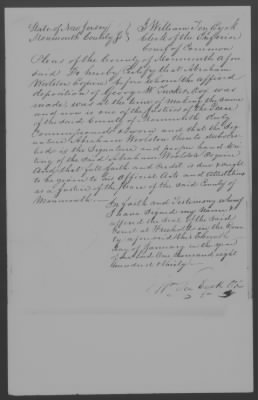 State of New Jersey
Monmouth County Ss
I William Ten Eyck
Clerk of the Inferior
Court of Common
Pleas of the County of Monmouth afore
said Do hereby Certify that Abraham
Woolston Esquire before whom the affored
deposition of George W. Tucker, Esq was
made, was at the time of making the same
and now is one of the Justices of the Peace
of the said County of Monmouth duly
Commissioned & Sworn and that the Sig
nature Abraham Woolston thereto subscri
bed is the Signature and proper hand wri
ting of the said Abraham Woolston Esquire
And that full faith and credit is due & ought
to be given to his Official Acts and attestations
as a Justice of the Peace of the said County of
Monmouth.
In faith and Testimony whereof
I have signed my name &
affixed the Seal of the said
Court at Freehold in the Coun
ty aforesaid this Eleventh
day of January in the year
of our Lord One thousand eight
hundred & thirty
Wm Ten Eyck Clk